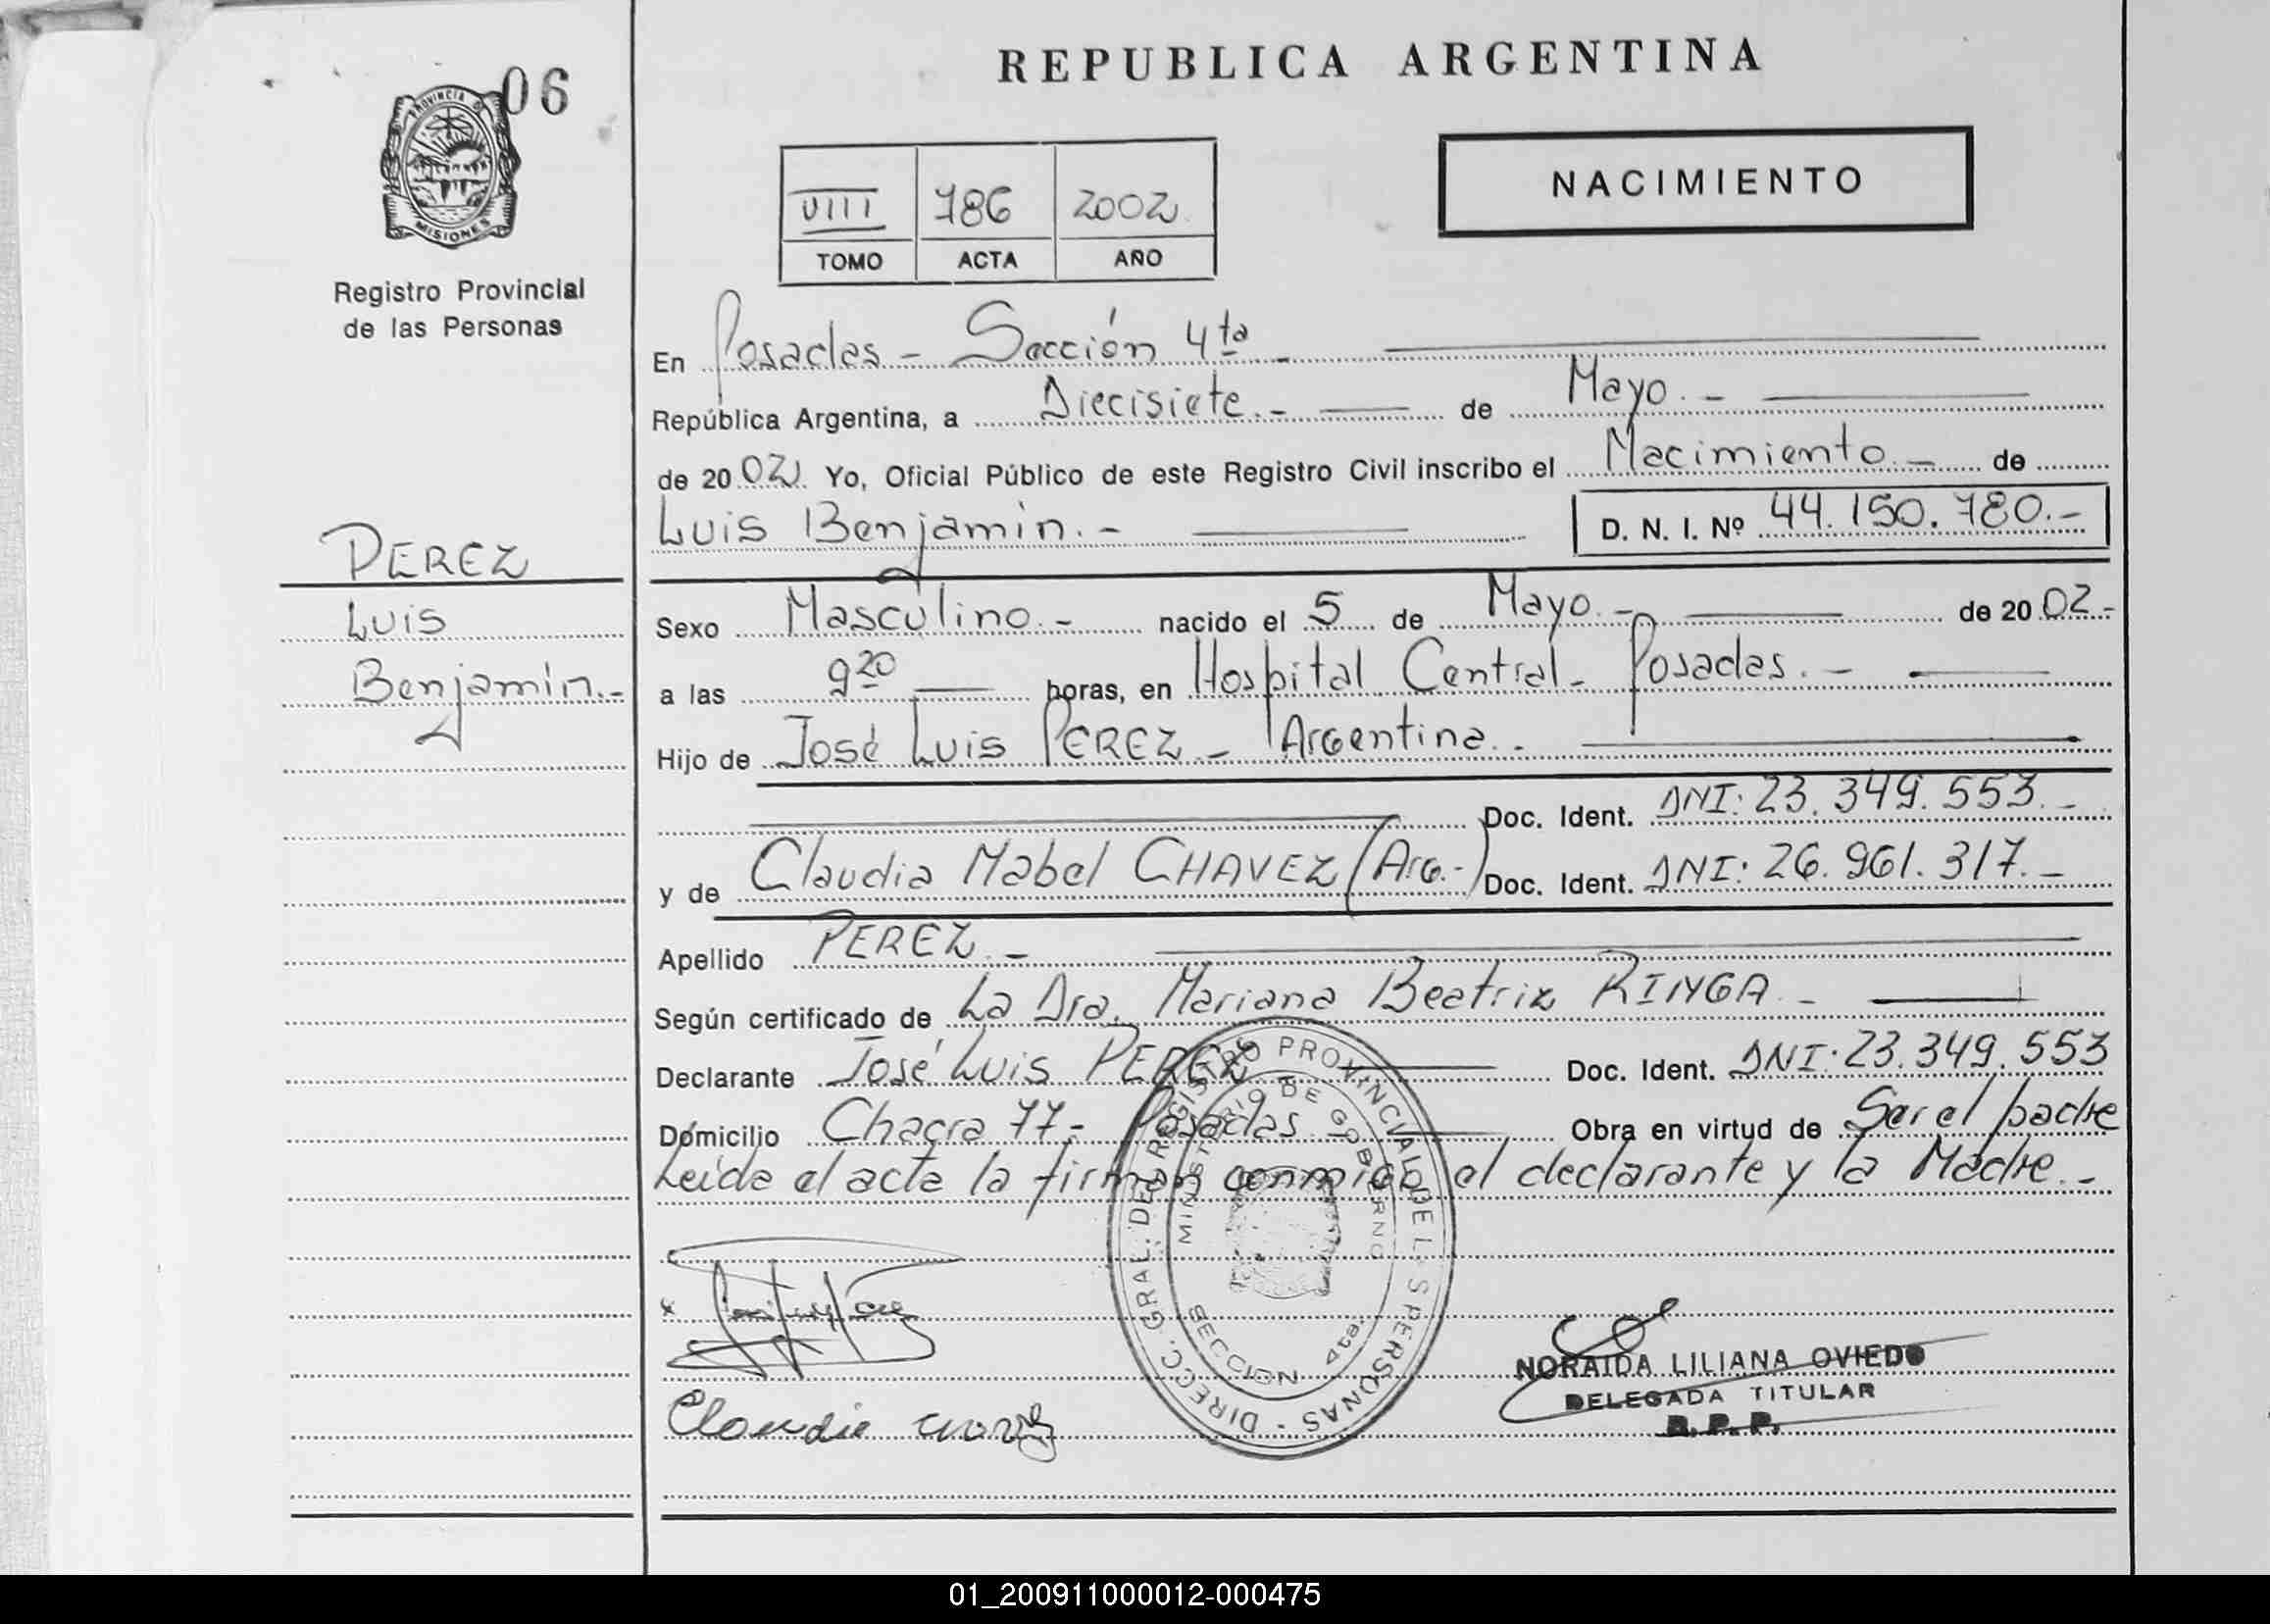 REPUBLICA ARGENTINA
06
PROVINCIA DE MISIONES
Registro Provincial
de las Personas
NACIMIENTO
VIII 786 2002
TOMO ACTA AÑO
En Posadas - Sección 4ta -
República Argentina, a Diecisiete.- de Mayo.-
de 2002 Yo, Oficial Público de este Registro Civil inscribo el Nacimiento.- de
Luis Benjamín.- D. N. I. Nº 44.150.780.-
PEREZ
Luis
Benjamín.-
Sexo Masculino.- nacido el 5 de Mayo.- de 2002.-
a las 9 20 horas, en Hospital Central - Posadas.-
Hijo de José Luis PEREZ - Argentina.-
Doc. Ident. DNI: 23.349.553.-
y de Claudia Mabel CHAVEZ (Arg.-) Doc. Ident. DNI: 26.961.317.-
Apellido PEREZ.-
Según certificado de La Dra. Mariana Beatriz RINGA.-
Declarante José Luis PEREZ Doc. Ident. DNI: 23.349.553
Domicilio Chacra 77,- Posadas.- Obra en virtud de Ser el padre
Leida el acta la firman conmigo el declarante y la Madre.-
DIRECC. GRAL. DEL REGISTRO PROVINCIAL DE L S PERSONAS -
MINISTERIO DE GOBIERNO
SECCION 4ta.
NORAIDA LILIANA OVIEDO
DELEGADA TITULAR
R.P.P.
Claudia
01_200911000012-000475